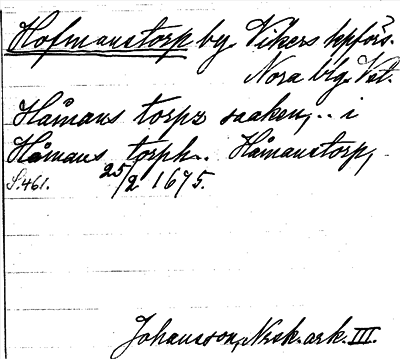 Hofmanstorp by Vikers kpförs.
Nora blg. Vst.
Håmans torps saaken,.. i
Håmans torph.. Håmanstorp,
S.461. 25/2 1675.
Johansson, Nrsk. ark. III.